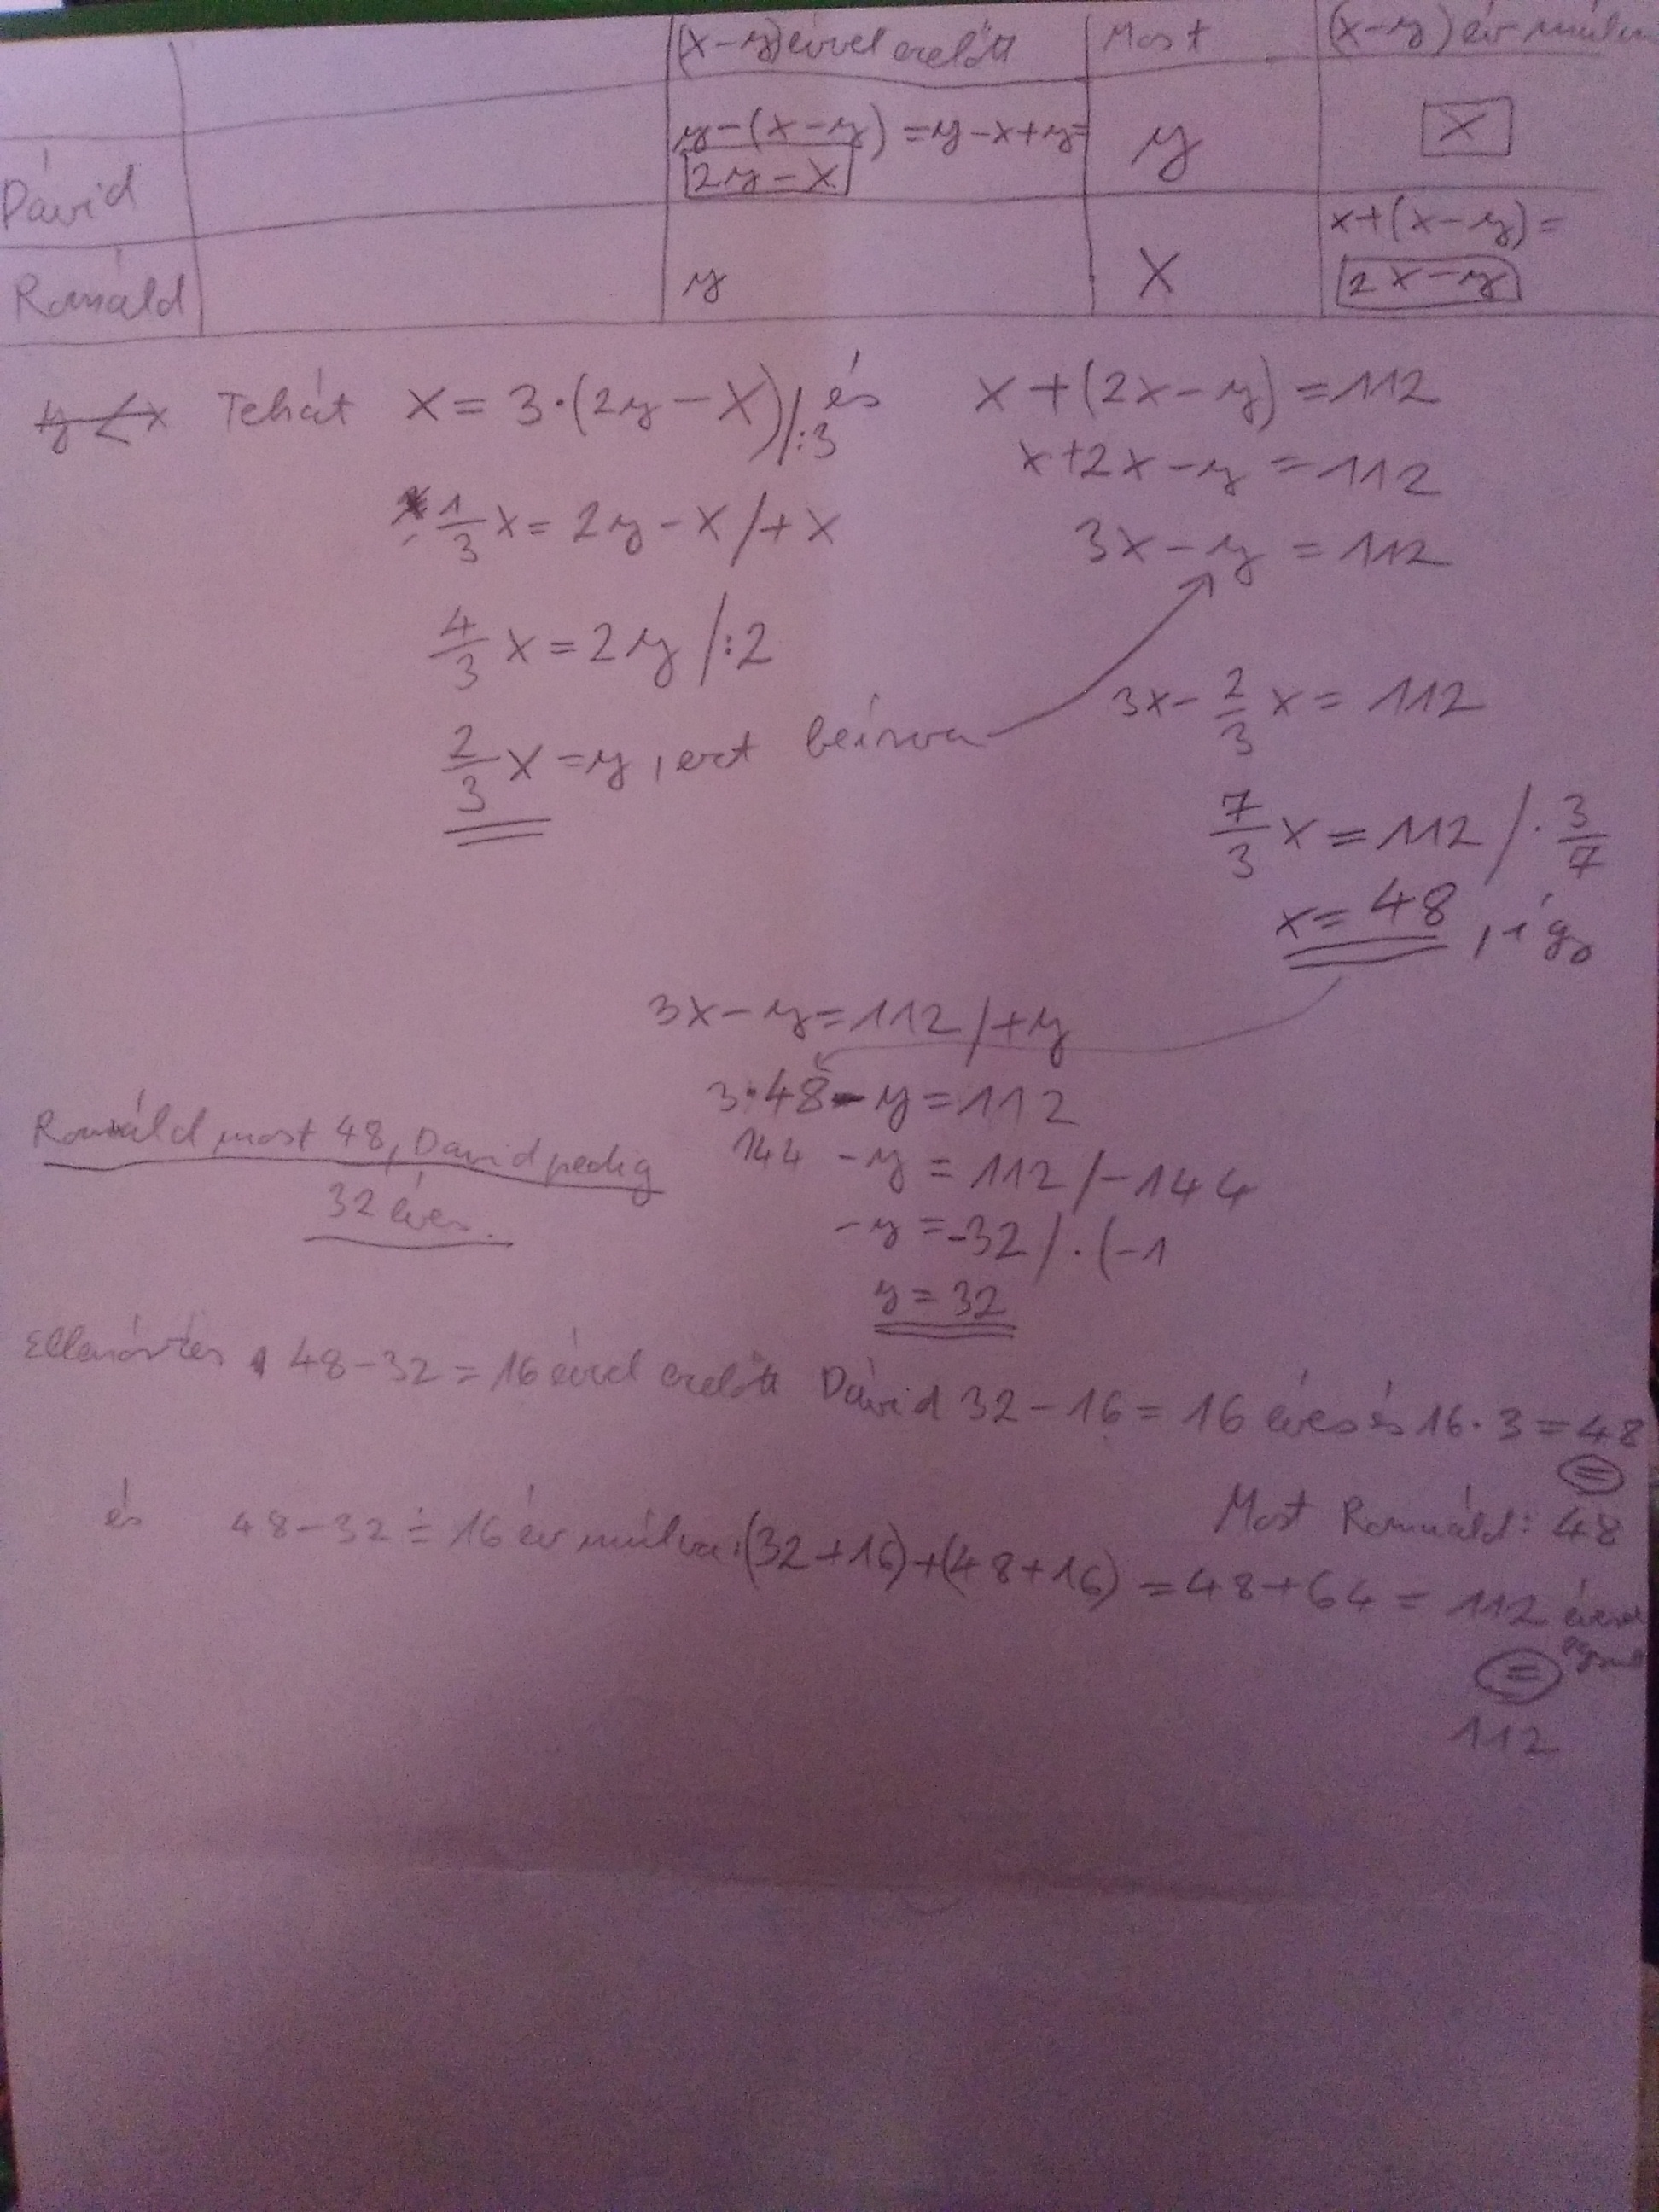 (x-y) évvel ezelőtt Most (x-y) év múlva
Dávid y-(x-y)=y-x+y= 2y-x y x
Romuáld y x x+(x-y)= 2x-y
y<x Tehát x=3·(2y-x)/:3 és x+(2x-y)=112
x+2x-y=112
1/3 x=2y-x/+x 3x-y=112
4/3 x=2y/:2
3x-2/3 x=112
2/3 x=y, ezt beírva
7/3 x=112/·3/7
x=48, így
3x-y=112/+y
3·48-y=112
Romuáld most 48, Dávid pedig
32 éves.
144-y=112/-144
-y=-32/·(-1
y=32
Ellenőrzés 48-32=16 évvel ezelőtt Dávid 32-16=16 éves és 16·3=48
=
Most Romuáld: 48
és 48-32=16 év múlva:(32+16)+(48+16)=48+64=112 évesek
=
112